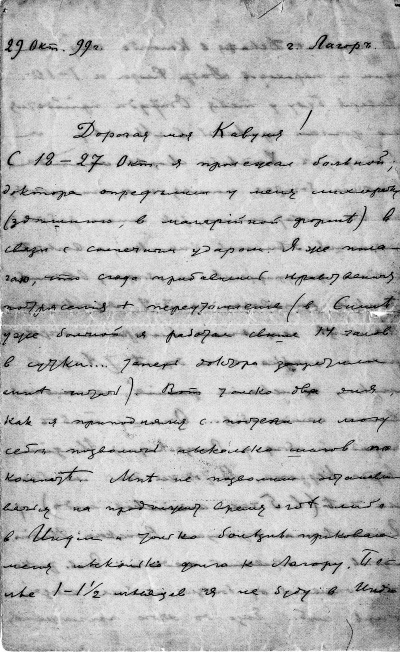 29 Окт. 99г. г. Лагоръ.
Дорогая моя Кавуня!
С 18–27 Окт. я пролежал больной,
доктора определили у меня лихорадку
(здешнюю, в малярійной формѣ) в
связи с солнечным ударом. Я же пола
гаю, что сюда прибавились нравственныя
потрясения + переутомление (в Симлѣ
уже больной я работал свыше 14 часов
в сутки.... теперь доктора запретили
мнѣ
Вот только два дня,
как я приподнялся с постели и могу
себѣ позволить нѣсколько шагов по
комнатѣ. Мнѣ не позволили останавли
ваться на продолжит. время гдѣ либо
в Индіи и только болѣзнь приковала
меня нѣсколько долго к Лагору. Пос
лѣ 1–1½ мѣсяцев я не буду в Индіи